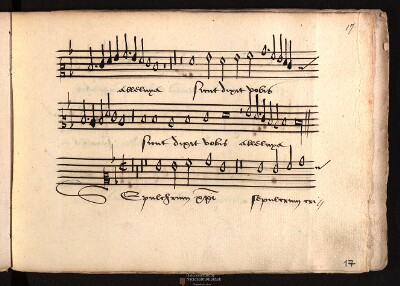 17
alleluya sicut dixit vobis
sicut dixit vobis alleluya
Sepulchrum xpi sepulcrum cri
17